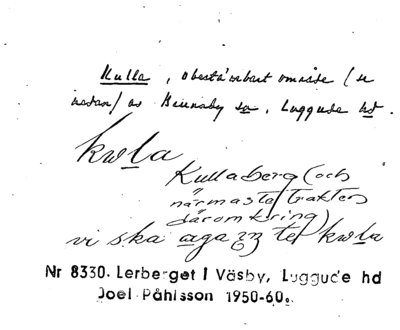 Kulla, obestämbart område (se
nedan) av Brunnby sn, Luggude hd.
kwla
Kullaberg (och
närmaste trakten
däromkring)
vi ska aga te kwla
Nr 8330. Lerberget i Väsby, Luggude hd
Joel Påhlsson 1950-60.